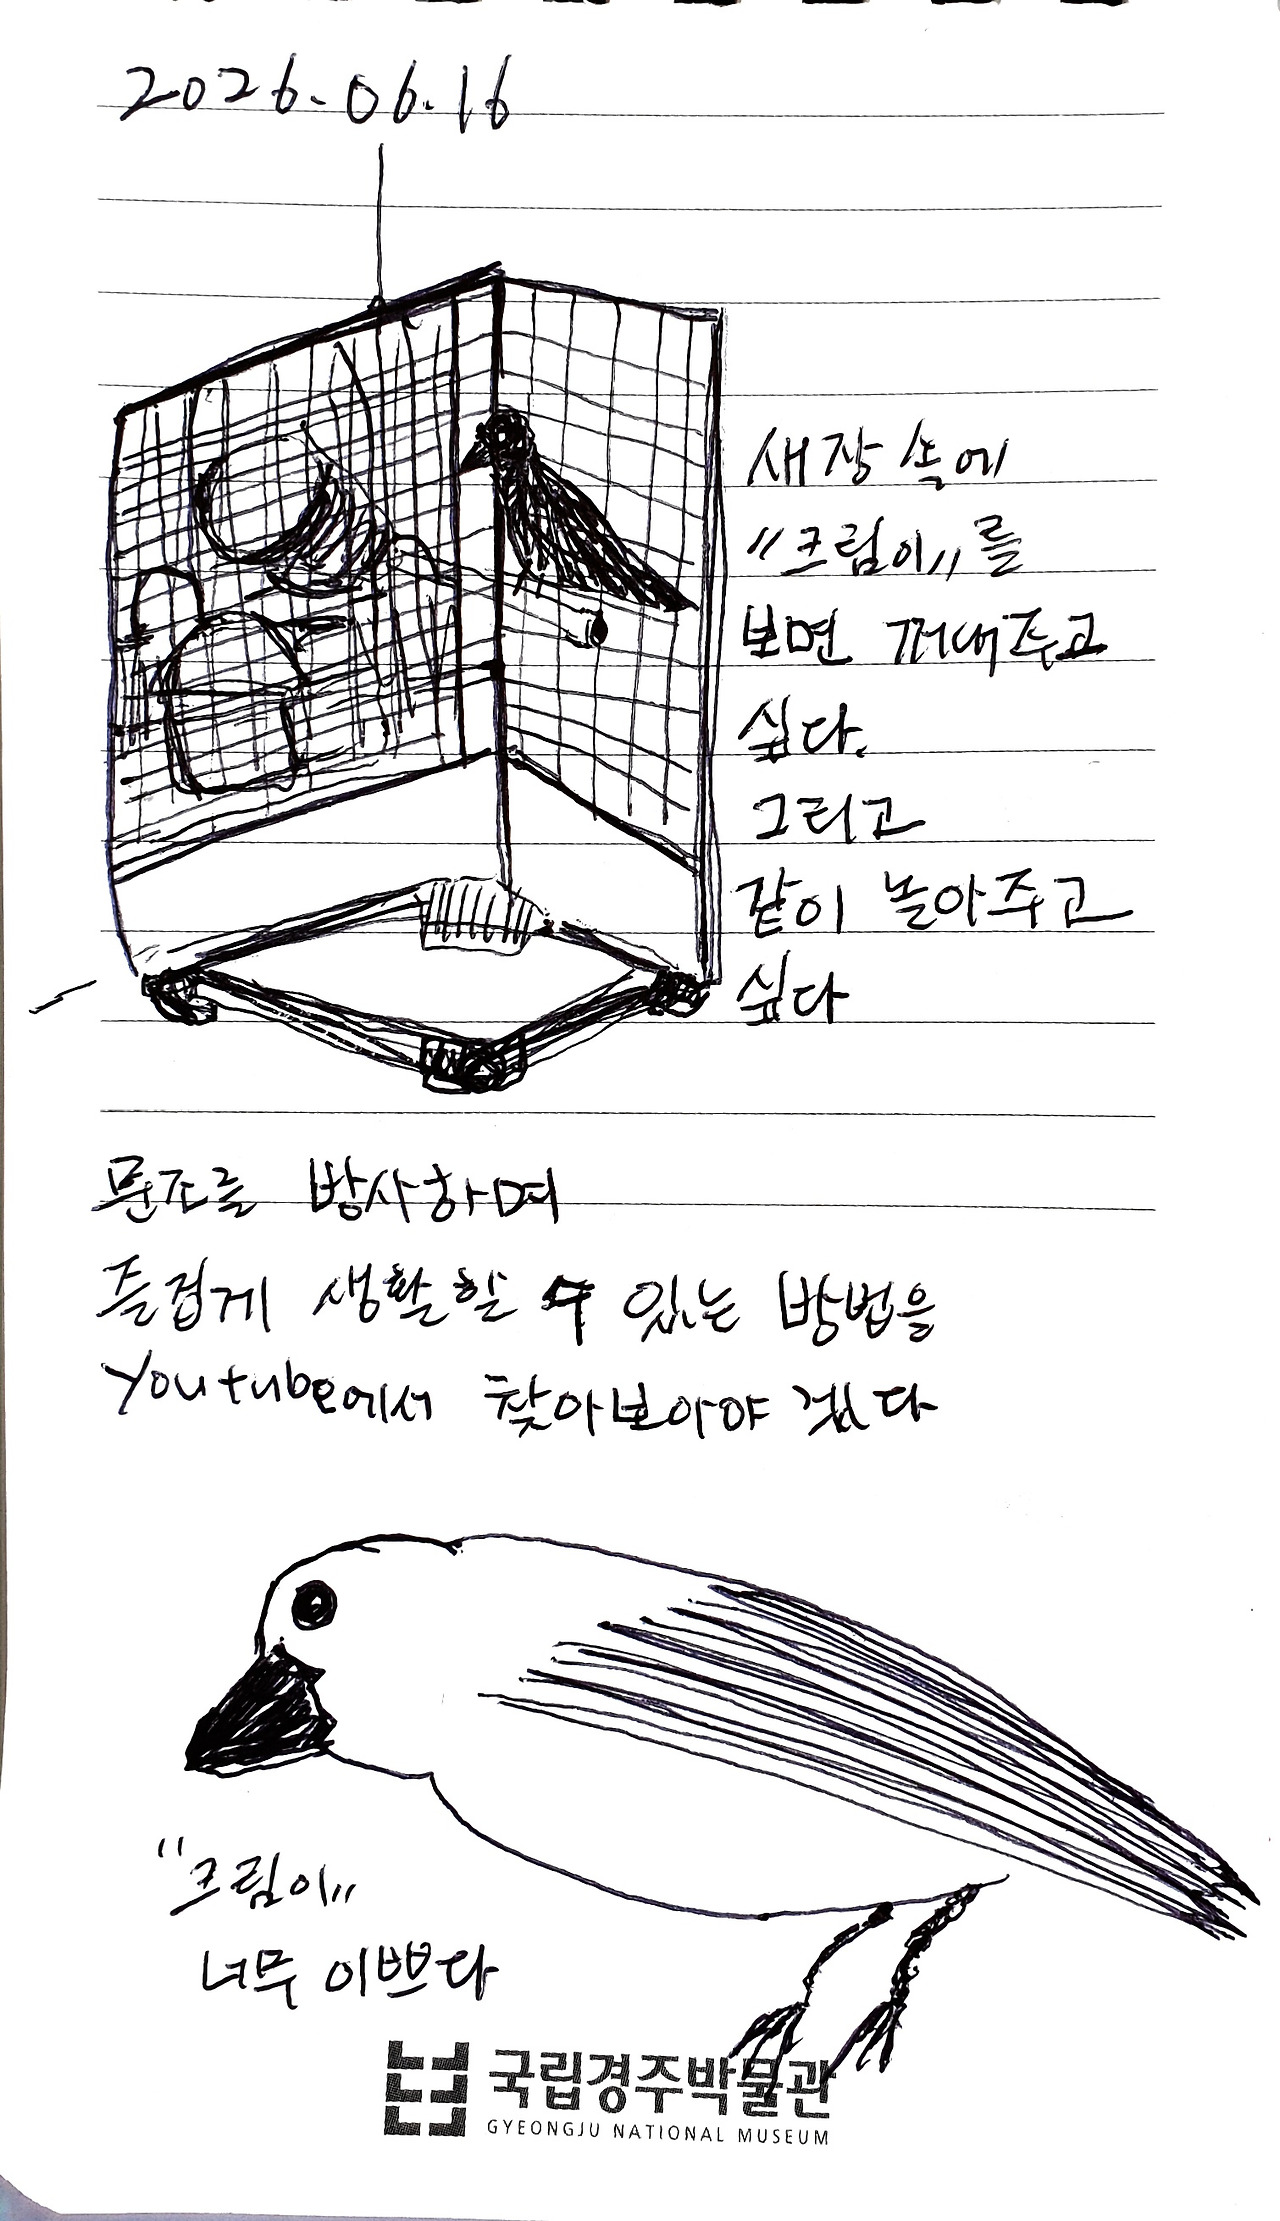 2026.06.16
새장 속에
"크림이"를
보면 꺼내주고
싶다.
그리고
같이 놀아주고
싶다
문조를 방사하며
즐겁게 생활할 수 있는 방법을
Youtube에서 찾아보아야 겠다
"크림이"
너무 이쁘다
국립경주박물관
GYEONGJU NATIONAL MUSEUM